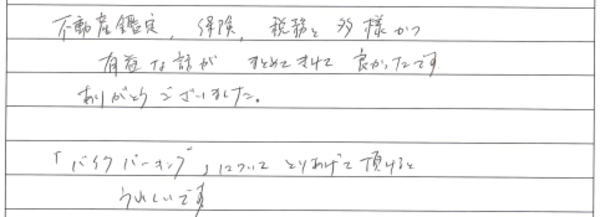 不動産鑑定，保険，税務と多様かつ
有益な話がまとめてきけて良かったです
ありがとうございました。
「バイクパーキング」についてとりあげて頂けると
うれしいです